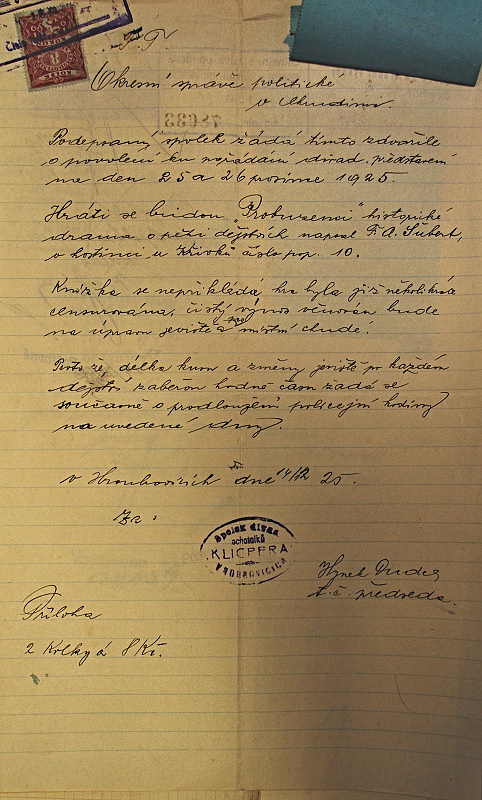 P. T.
Okresní správě politické
v Chrudimi.
48633
Podepsaný spolek žádá tímto zdvořile
o povolení ku pořádání divad. představení
na den 25 a 26 prosince 1925.
Hráti se budou „Probuzenci" historické
drama o pěti dějstvích napsal F. A. Šubert,
v hostinci u Křivků číslo pop. 10.
Knížka se nepřikládá, hra byla již několikráte
censurována, čistý výnos věnován bude
na úpravu jeviště a místní chudé.
Proto že délka kusu a změny jeviště po každém
dějství zaberou hodně času žádá se
současně o prodloužení policejní hodiny
na uvedené dny.
v Hrochovicích dne 14/12 25.
Za:
Spolek divad.
ochotníků
KLICPERA
Hynek
t. č. předseda.
Příloha
2 Kolky á 8 Kč.